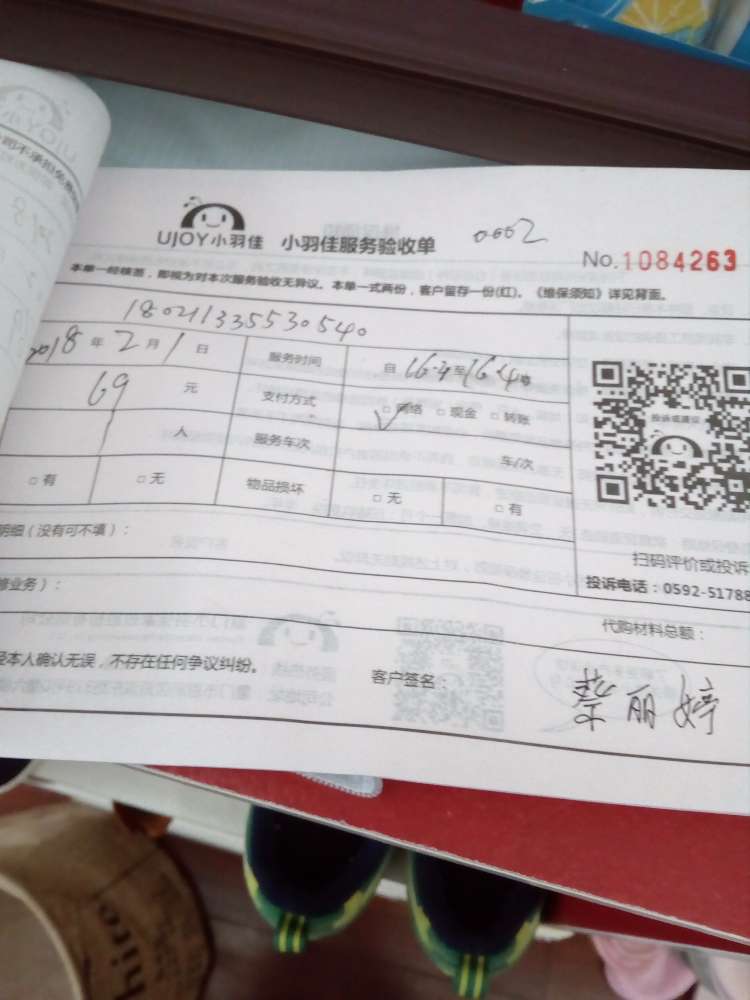 UJOY小羽佳 小羽佳服务验收单 0002
No.1084263
本单一经核签，即视为对本次服务验收无异议。本单一式两份，客户留存一份(红)。《维保须知》详见背面。
18021133553054o
2018年2月1日 服务时间 自 至
69 元 支付方式 □网络 □现金 □转账
1 人 服务车次 车/次
投诉或建议
□有 □无 物品损坏 □无 □有
明细（没有可不填）：
扫码评价或投诉
投诉电话：0592-51788
修业务）：
代购材料总额：
经本人确认无误，不存在任何争议纠纷。 客户签名： 丽婷